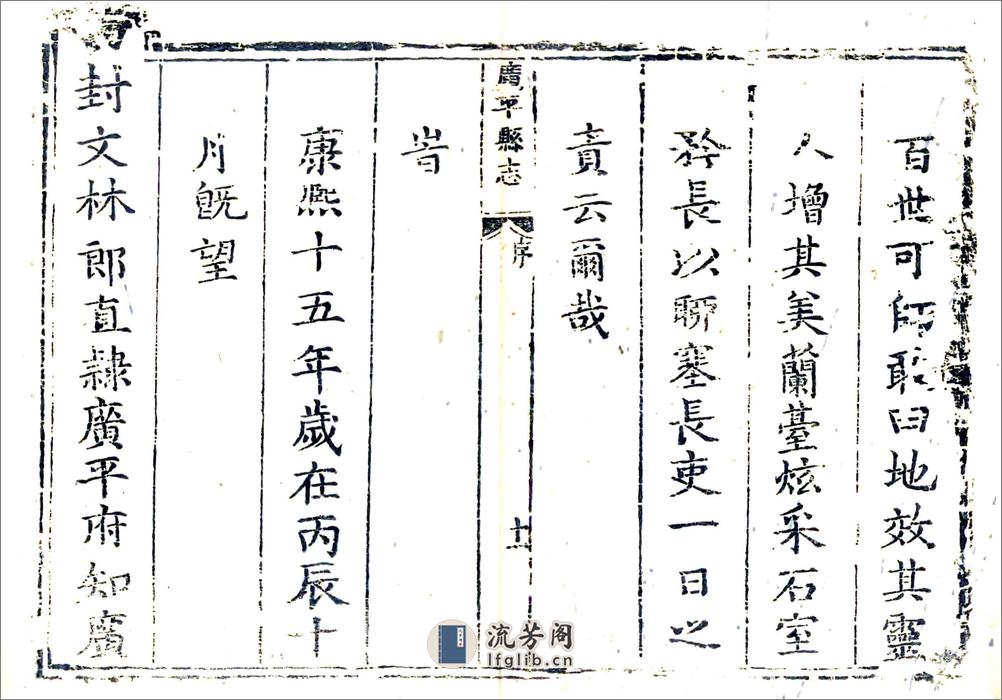 百世可師敢曰地效其靈
人增其美蘭臺炫采石室
矜長以聊塞長吏一日之
責云爾哉
廣平縣志
序
十一
旹
康熙十五年歲在丙辰十
月旣望
封文林郎直隸廣平府知廣
流芳阁
lfglib.cn